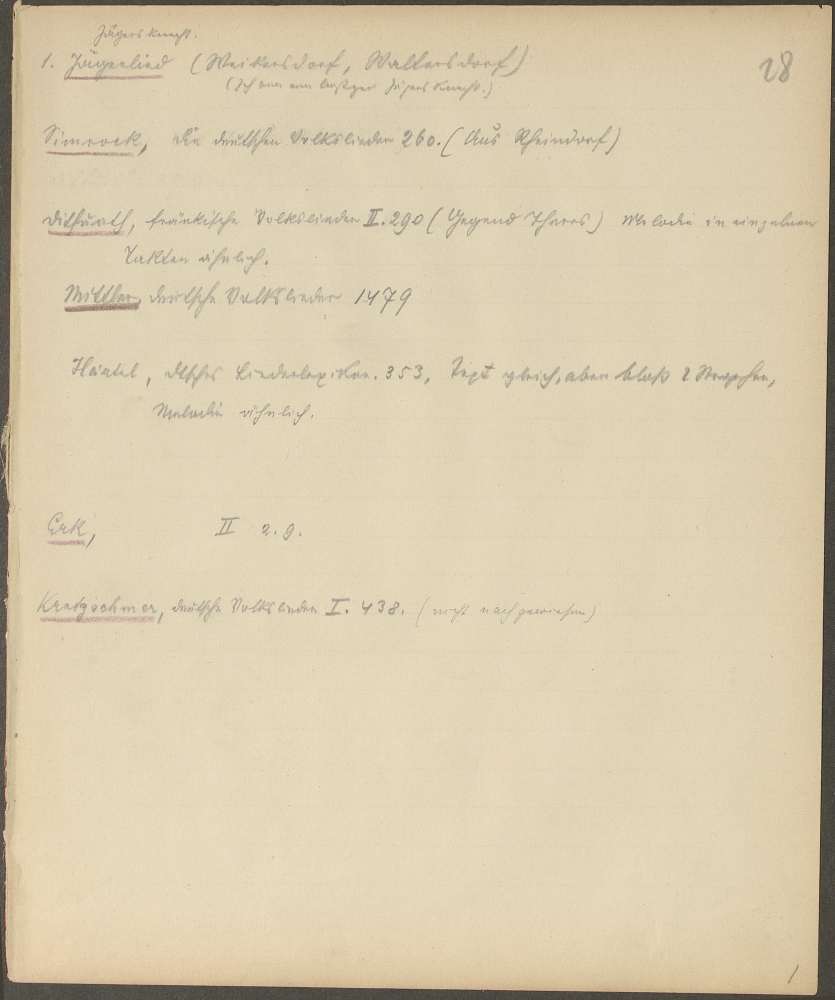 Jägers Knecht.
1. Jägerlied (Weikersdorf, Waltersdorf)
28
(Ich war ein lustger Jägers Knecht.)
Simrock, die deutschen Volkslieder 260. (Aus Rheindorf)
Ditfurth, fränkische Volkslieder II. 290 (Gegend Theres) Melodie in einzelnen
Takten ähnlich.
Mittler, deutsche Volkslieder 1479
Härtel, dtsches Liederlexikon. 353, Text gleich, aber bloß 2 Strophen,
Melodie ähnlich.
Erk, II 2. 9.
Kretzschmer, deutsche Volkslieder I. 438. (nicht nachgewiesen)
1